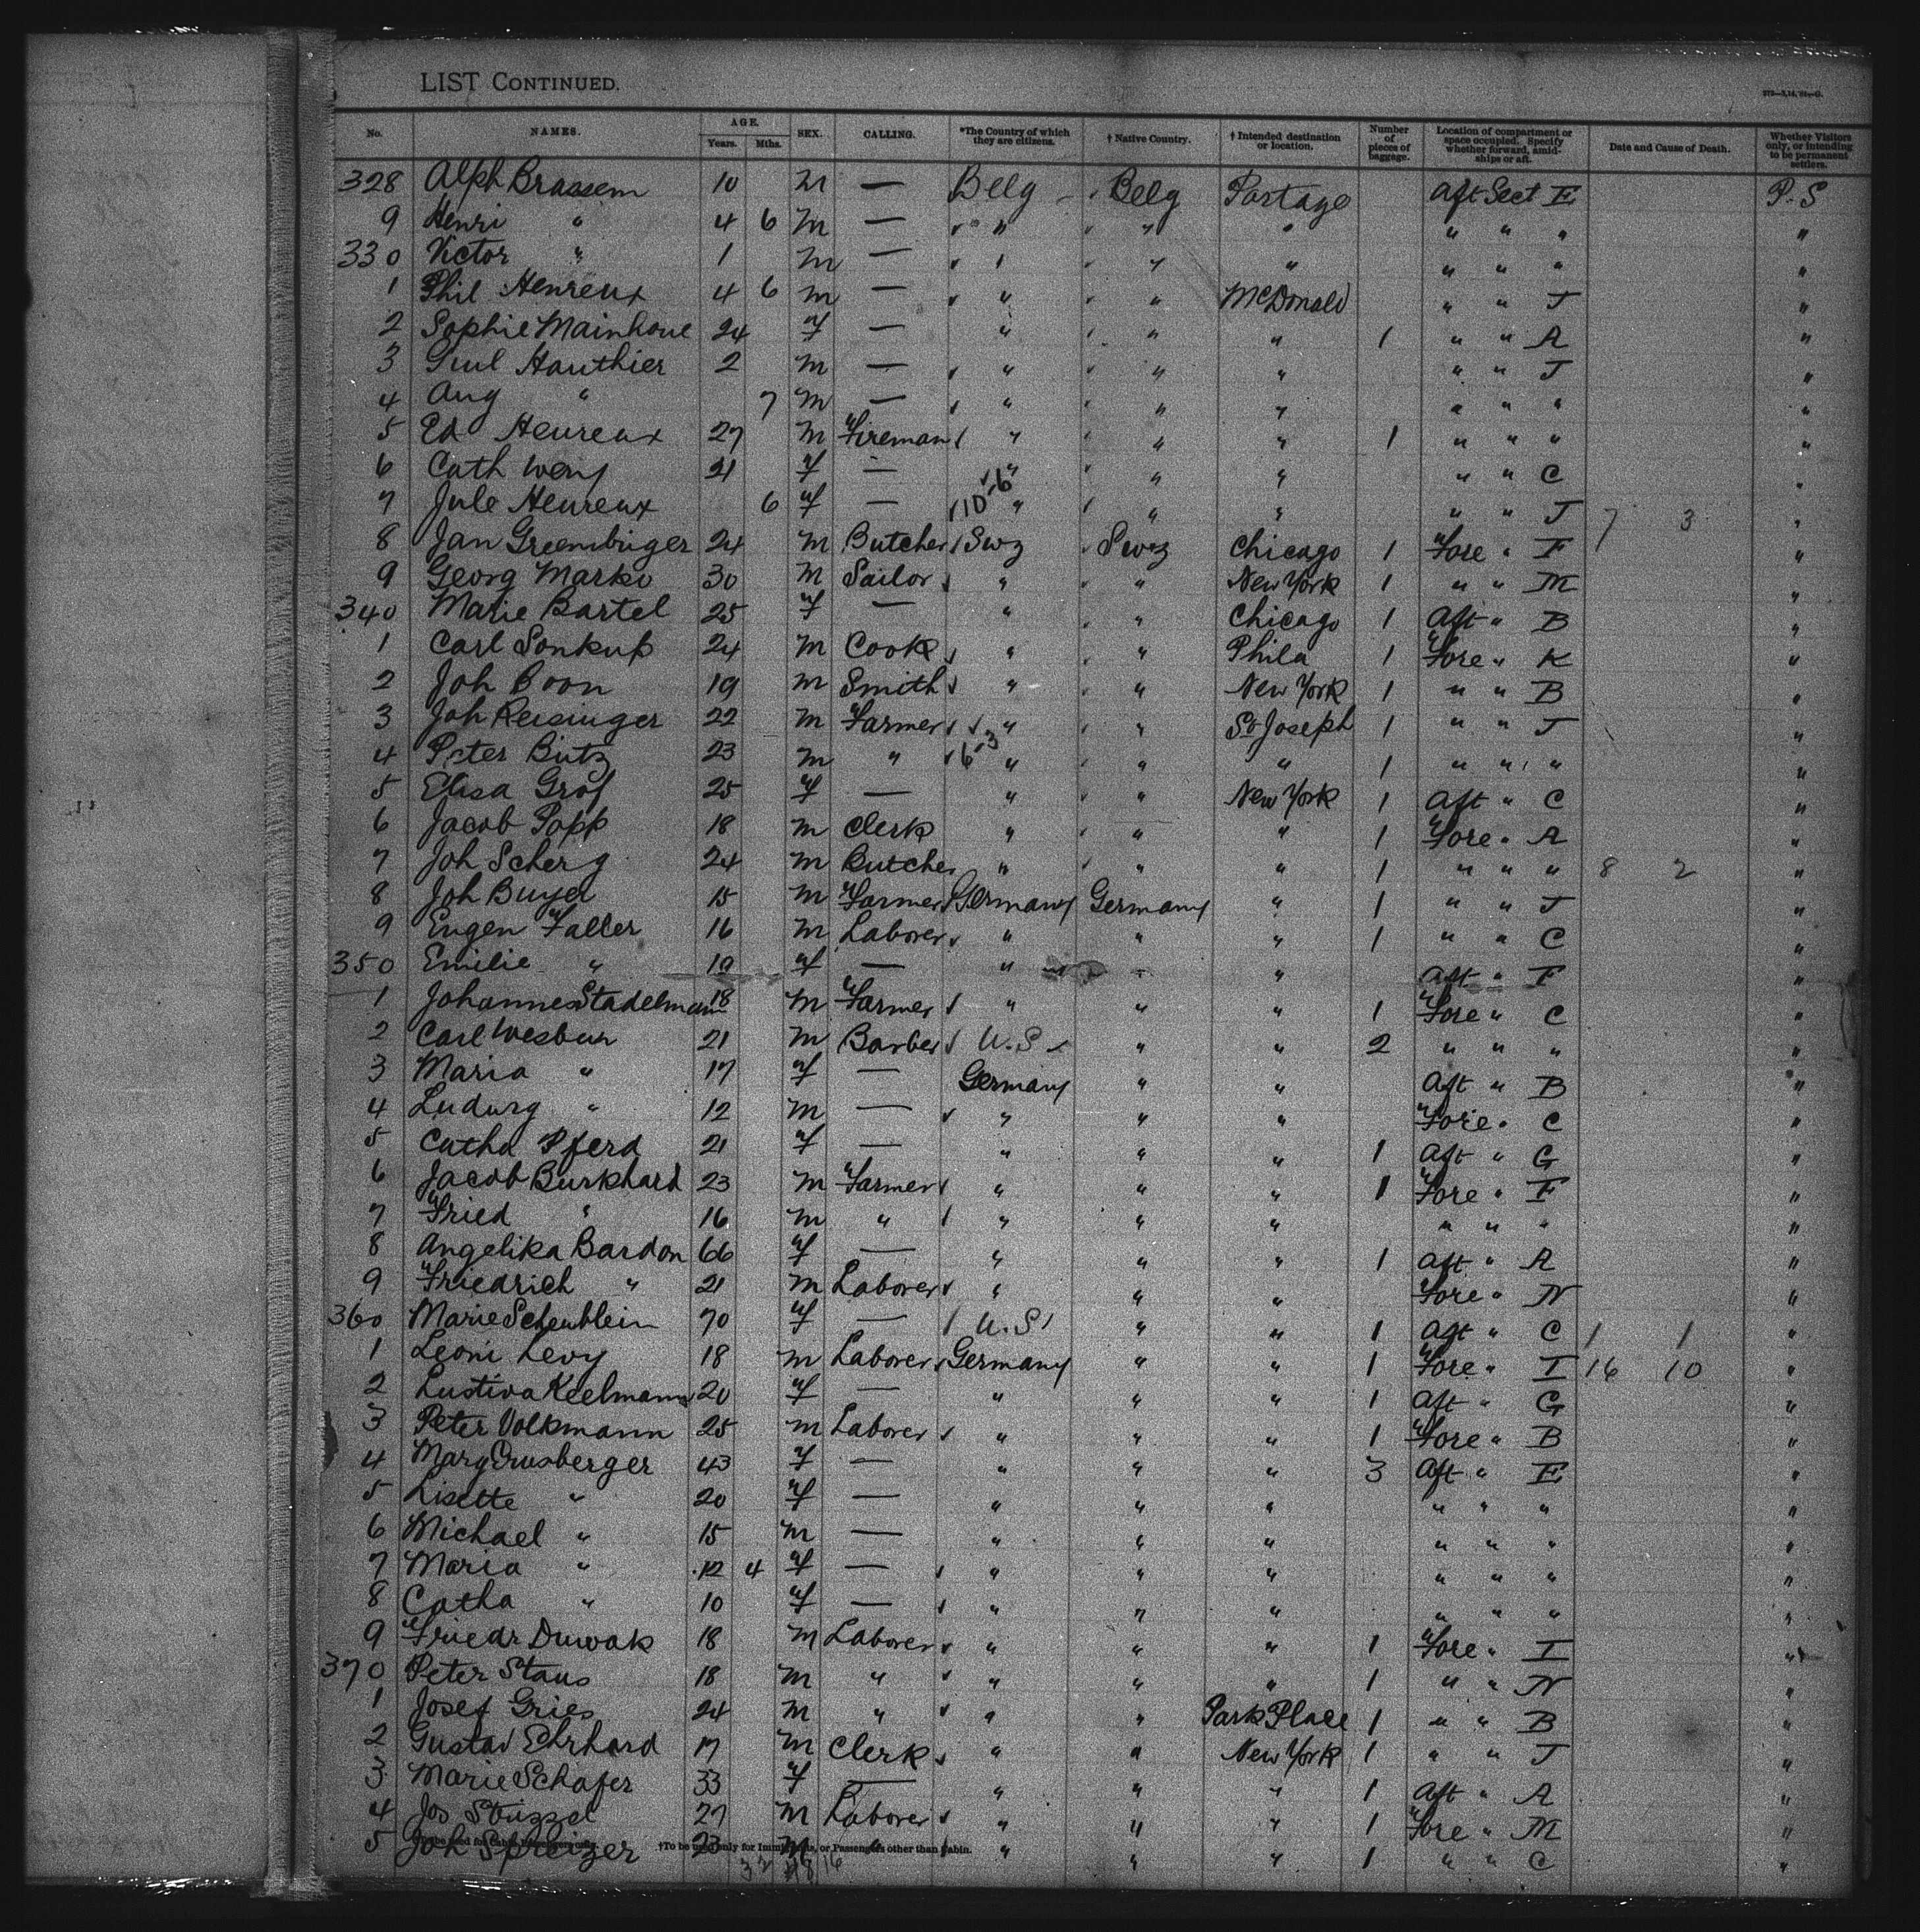 LIST CONTINUED.
No. NAMES. AGE. Years. Mths. SEX. CALLING. *The Country of which they are citizens. † Native Country. † Intended destination or location. Number of pieces of baggage. Location of compartment or space occupied. Specify whether forward, amidships or aft. Date and Cause of Death. Whether Visitors only, or intending to be permanent settlers.
328 Alph Brassem 10 M — Belg Belg Portage Aft Sect E P.S
9 Henri " 4 6 M — " " " " " " "
330 Victor " 1 M — " " " " " " "
1 Phil Heureux 4 6 M — " " McDonald " " J "
2 Sophie Mainhoue 24 f — " " " 1 " " A "
3 Gul Hauthier 2 M — " " " " " J "
4 Aug " 7 M — " " " " " " "
5 Ed Heureux 27 M Fireman " " " 1 " " " "
6 Cath Weny 21 f — " " " " " C "
7 Jule Heureux 6 f — 10-6 " " " " " J 7 3 "
8 Jan Greembinger 24 M Butcher Swz Swz Chicago 1 Fore " F "
9 Georg Marko 30 M Sailor " " New York 1 " " M "
340 Marie Bartel 25 f — " " Chicago 1 Aft " B "
1 Carl Sonkup 24 M Cook " " Phila 1 Fore " K "
2 Joh Boon 19 M Smith " " New York 1 " " B "
3 Joh Reisinger 22 M Farmer " " St Joseph 1 " " J "
4 Peter Butz 23 M " 6-3 " " " 1 " " " "
5 Elisa Grof 25 f — " " New York 1 Aft " C "
6 Jacob Popp 18 M Clerk " " " 1 Fore " A "
7 Joh Scherg 24 M Butcher " " " 1 " " " 8 2 "
8 Joh Buyer 15 M Farmer Germany Germany " 1 " " J "
9 Eugen Faller 16 M Laborer " " " 1 " " C "
350 Emilie " 19 f — " " " Aft " F "
1 Johannes Stadelmann 18 M Farmer " " " 1 Fore " C "
2 Carl Wesbur 21 M Barber U.S " " 2 " " " "
3 Maria " 17 f — Germany " " Aft " B "
4 Ludwig " 12 M — " " " Fore " C "
5 Catha Pferd 21 f — " " " 1 Aft " G "
6 Jacob Burkhard 23 M Farmer " " " 1 Fore " F "
7 Fried " 16 M " " " " " " " "
8 Angelika Bardon 66 f — " " " 1 Aft " A "
9 Friedrich " 21 M Laborer " " " Fore " N "
360 Marie Scheublein 70 f — U.S " " 1 Aft " C 1 1 "
1 Leoni Levy 18 M Laborer Germany " " 1 Fore " I 16 10 "
2 Lustiva Keelmann 20 f — " " " 1 Aft " G "
3 Peter Volkmann 25 M Laborer " " " 1 Fore " B "
4 Mary Ernsberger 43 f — " " " 3 Aft " E "
5 Lisette " 20 f — " " " " " " "
6 Michael " 15 M — " " " " " " "
7 Maria " 12 4 f — " " " " " " "
8 Catha " 10 f — " " " " " " "
9 Friedr Duwak 18 M Laborer " " " 1 Fore " I "
370 Peter Staus 18 M " " " " 1 " " N "
1 Josef Gries 24 M " " " Park Place 1 " " B "
2 Gustav Ehrhard 17 M Clerk " " New York 1 " " J "
3 Marie Schafer 33 f — " " " 1 Aft " A "
4 Jos Stuzzel 27 M Laborer " " " 1 Fore " M "
5 Joh Spreizer 23 M " " " " 1 " " C "
†To be used only for Immigrants, or Passengers other than Cabin.